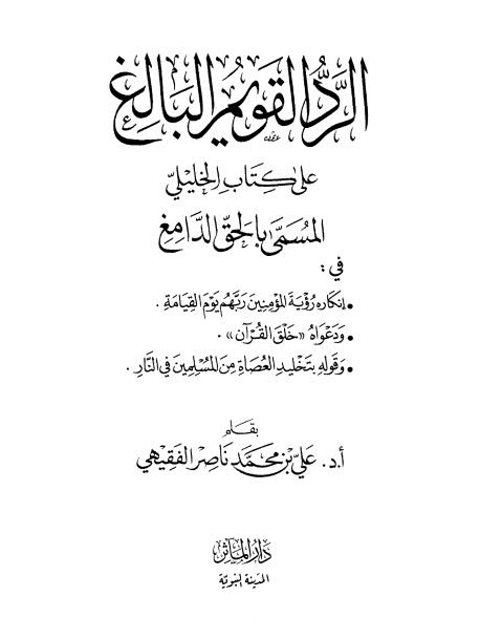 الرَّدُّ القَوِيمُ البَالِغُ
عَلىٰ كِتَابِ الخَلِيْلِيِّ
المُسَمَّىٰ بِالحَقِّ الدَّامِغِ
فِي :
• إنكَاره رُؤيَةَ المُؤْمِنِينَ رَبَّهُم يَوْمَ القِيَامَةِ .
• وَدَعْوَاهُ «خَلْقَ القُرْآنِ» .
• وَقَولِهِ بِتَخْلِيدِ العُصَاةِ مِنَ المُسْلِمِينَ فِي النَّارِ .
بقَلَم
أ.د. عَلِيّ بْن مُحَمَّد نَاصِر الفَقِيهِي
دَارُ المَآثِر
المَدِينَة النَّبَوِيَّة